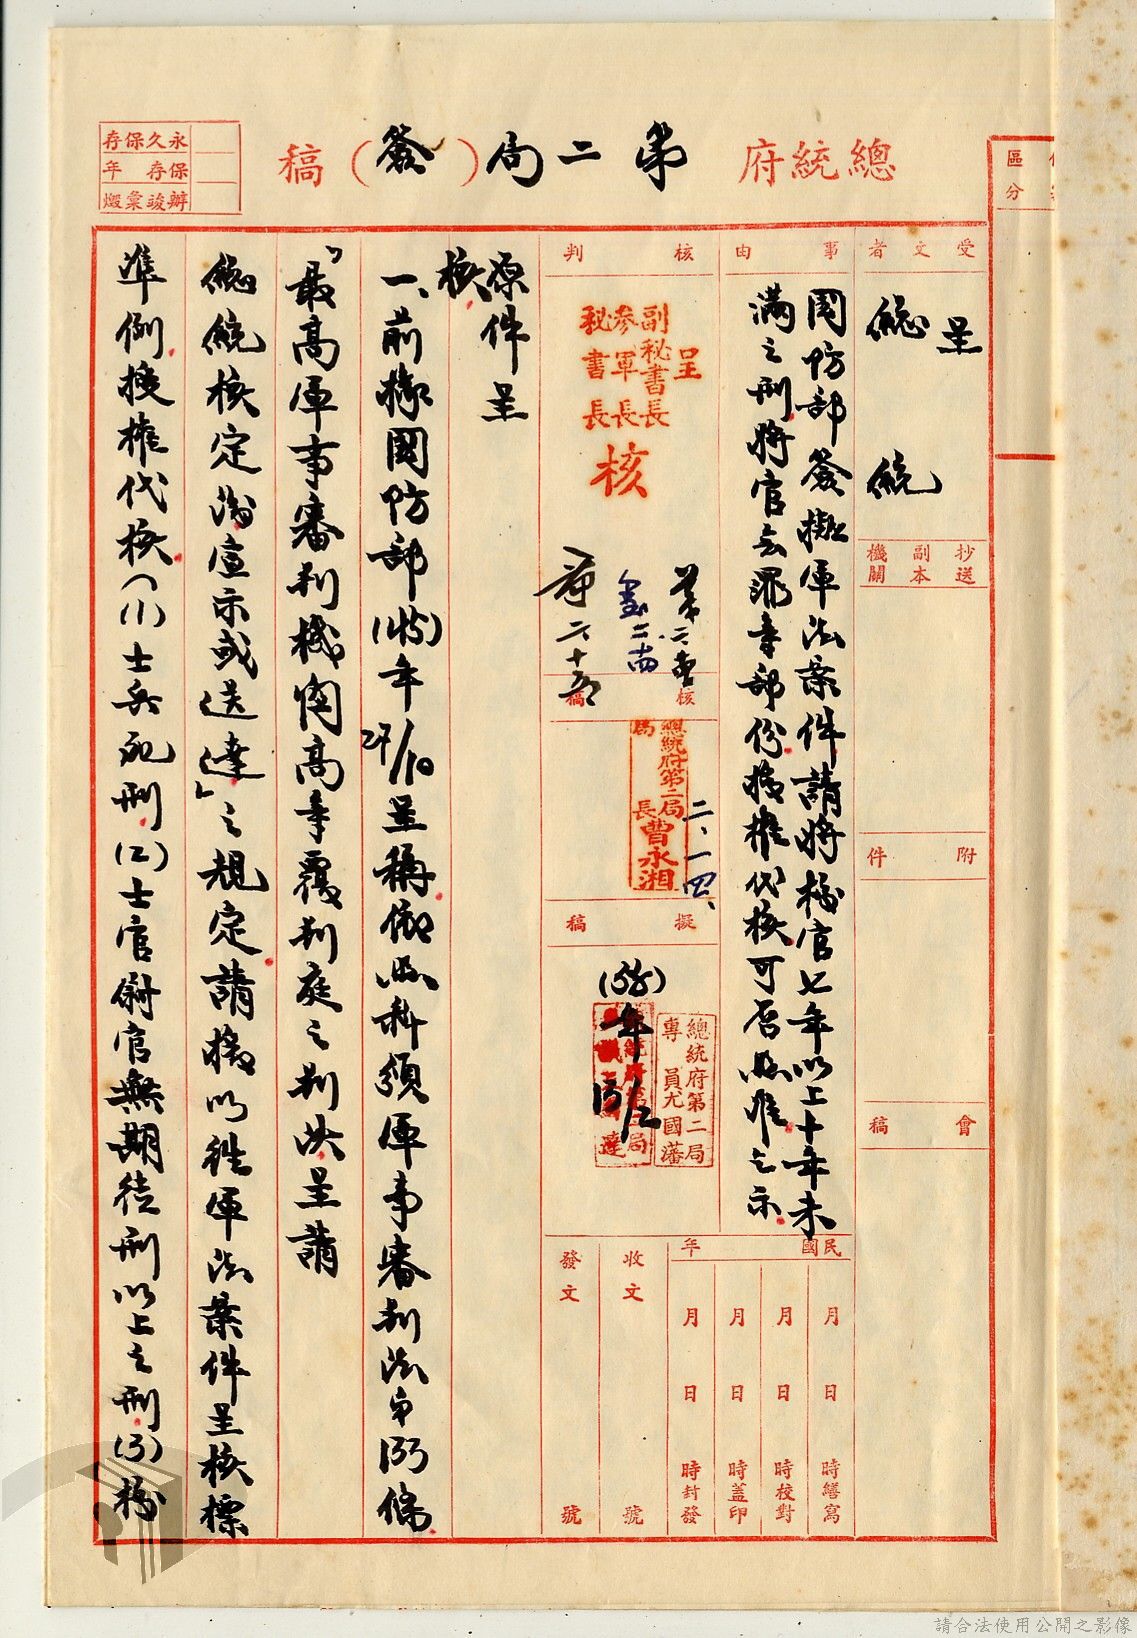 總統府第二局（簽）稿
永久保存
保存 年
辦竣彙燬
區分
受文者
呈
總統
抄送副本機關
附件
會稿
事由
國防部簽擬軍法案件請將校官七年以上十年未
滿之刑將官無罪等部份授權代核可否照准乞示
核判
呈
副秘書長
參軍長
秘書長
核
二、十四
二、十五
核稿
總統府第二局
局長曹永湘
二、一四、
擬稿
(58)年13/2
總統府第二局
專員尤國藩
民國 年
月 日 時繕寫
月 日 時校對
月 日 時蓋印
月 日 時封發
收文 號
發文 號
原件呈
核
一、前據國防部(45)年27/10呈稱依照科頒軍事審判法第133條
「最高軍事審判機關高等覆判庭之判決呈請
總統核定後宣示或送達」之規定請援以往軍法案件呈核標
準例授權代核(1)士兵死刑(2)士官尉官無期徒刑以上之刑(3)校
請合法使用公開之影像